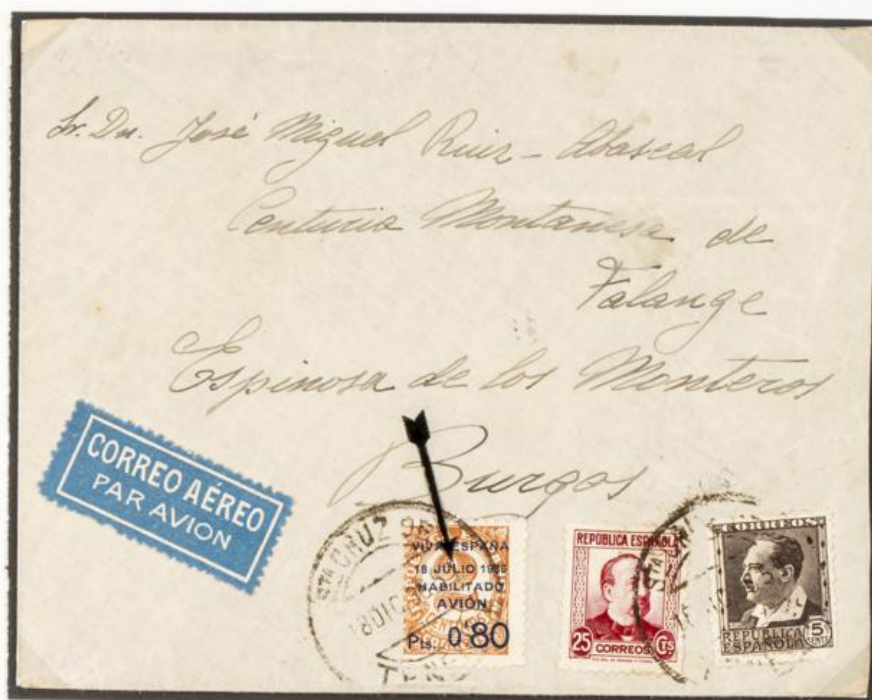 Sr. Dn. José Miguel Ruiz-Abascal
Centuria Montañesa de
Falange
Espinosa de los Monteros
Burgos
CORREO AÉREO
PAR AVION
STA CRUZ DE
18 DIC
TENE
VIVA ESPAÑA
18 JULIO 1936
HABILITADO
AVIÓN
Pts. 0'80
REPÚBLICA ESPAÑOLA
25 CORREOS CTS
CORREOS
REPÚBLICA
ESPAÑOLA
5
CENTS
STA